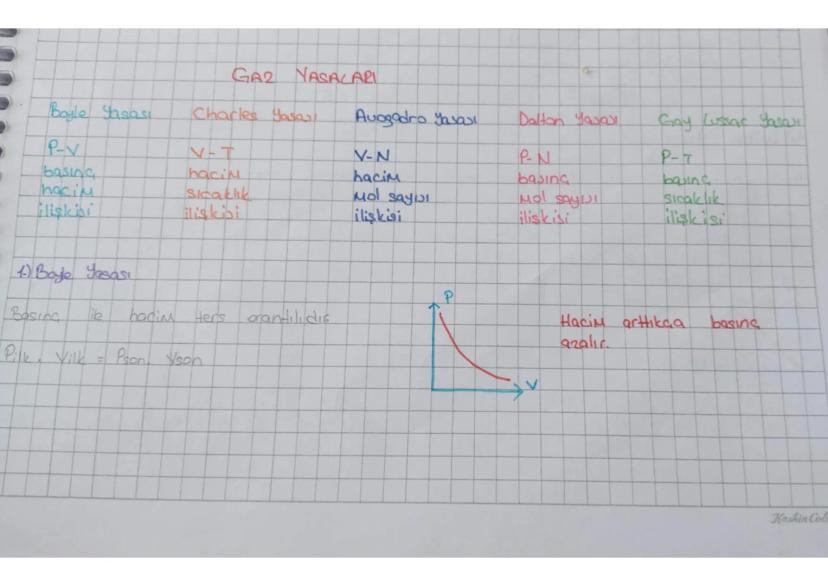 GAZ YASALARI
Boyle Yasası
Charles Yasası
Avogadro Yasası
Dalton Yasası
Gay Lussac Yasası
P-V
basınç
hacim
ilişkisi
V-T
hacim
sıcaklık
ilişkisi
V-N
hacim
mol sayısı
ilişkisi
P-N
basınç
mol sayısı
ilişkisi
P-T
basınç
sıcaklık
ilişkisi
1.) Boyle Yasası
Basınç ile hacim ters orantılıdır
Pilk . Vilk = Pson. Vson
P
V
Hacim arttıkça basınç
azalır.